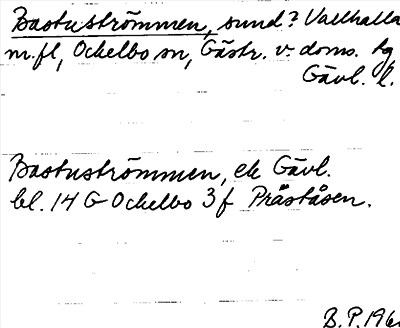 Bastuströmmen, sund? Vallhalla
m.fl, Ockelbo sn, Gästr. v. doms. hg
Gävl. l.
Bastuströmmen, ek Gävl.
bl. 14 G Ockelbo 3 f Präståsen.
B.P.196